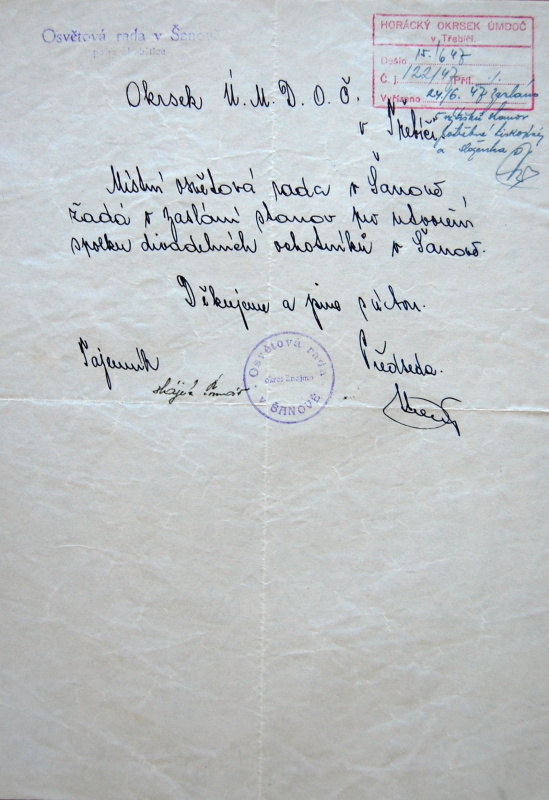 Osvětová rada v Šanově
HORÁCKÝ OKRSEK ÚMDOČ
v Třebíči.
Došlo 15./6 47
Č. j. 122/47 Příl. 1.
Vyřízeno 24/6. 47
a složenka
Okrsek Ú.M.D.O.Č.
v Třebíči
Místní osvětová rada v Šanově
žádá o zaslání stanov pro utvoření
spolku divadelních ochotníků v Šanově.
Děkujeme a jsme s úctou.
Tajemník
Předseda.
Osvětová rada
okres Znojmo
v ŠANOVĚ